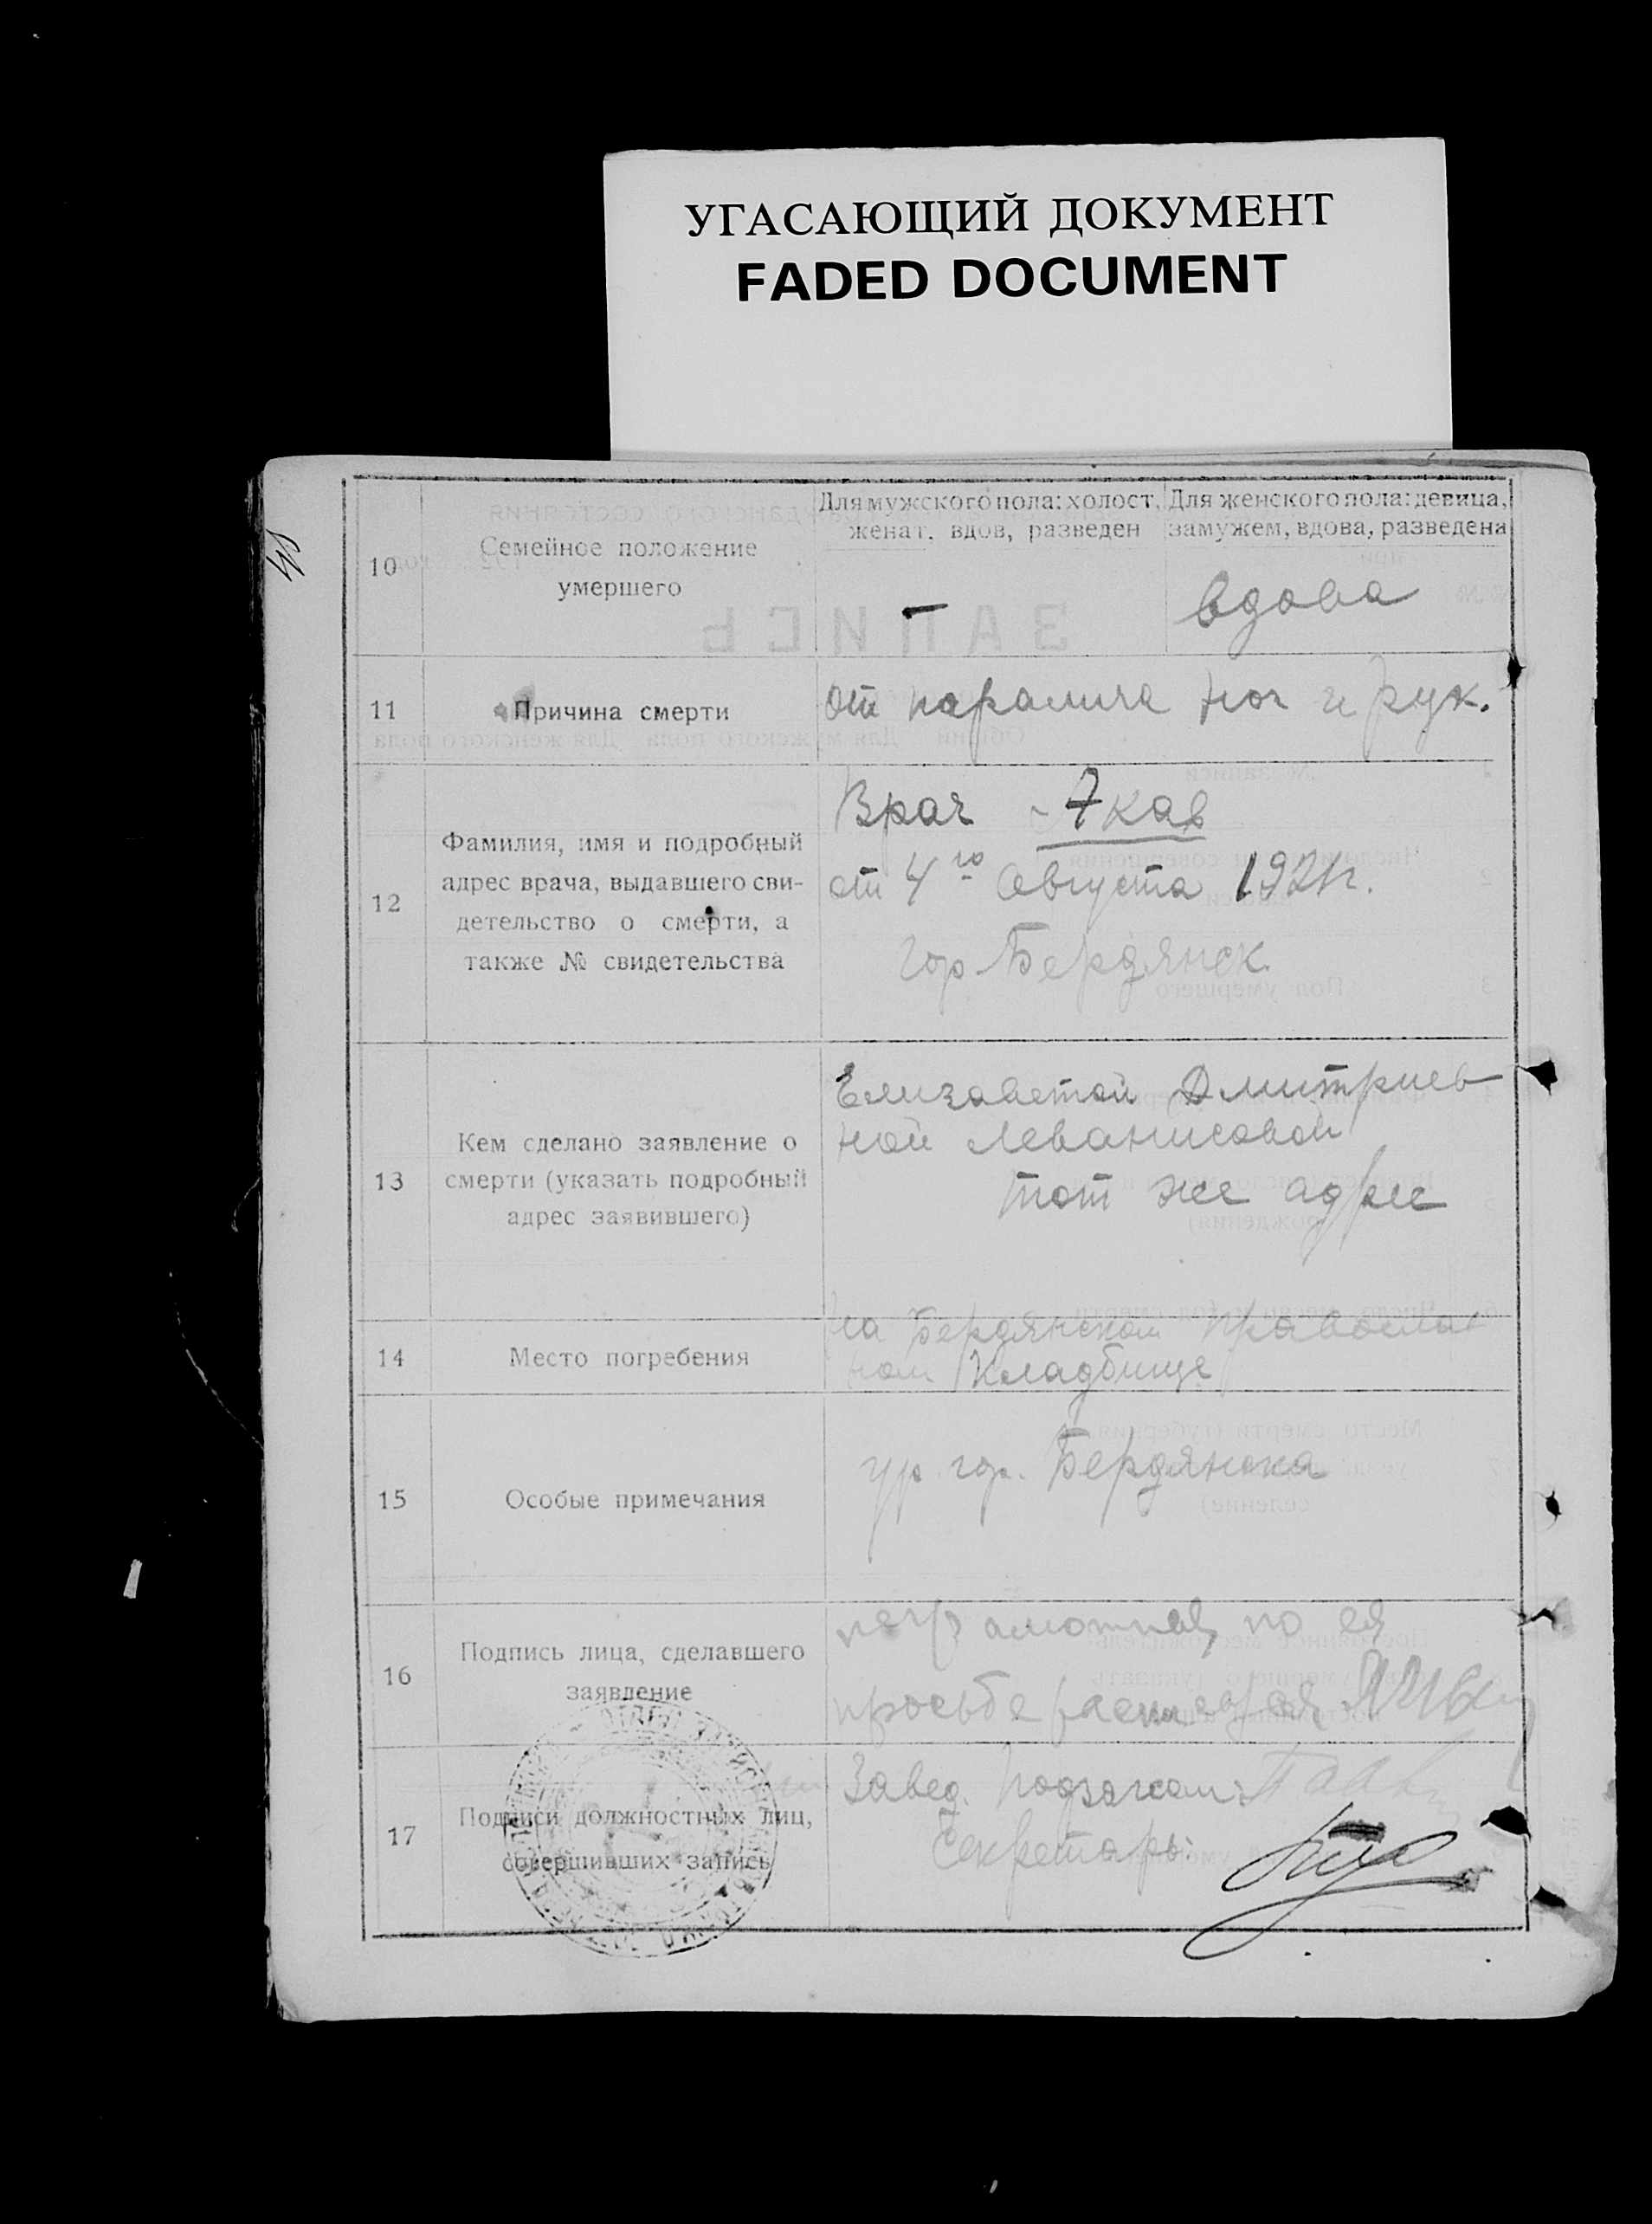 УГАСАЮЩИЙ ДОКУМЕНТ
FADED DOCUMENT
10
Семейное положение
умершего
Для мужского пола: холост,
женат, вдов, разведен
—
Для женского пола: девица,
замужем, вдова, разведена
вдова
11
Причина смерти
от паралича ног и рук.
12
Фамилия, имя и подробный
адрес врача, выдавшего сви-
детельство о смерти, а
также № свидетельства
Врач
от 4го Августа 1921г.
гор. Бердянск
13
Кем сделано заявление о
смерти (указать подробный
адрес заявившего)
Елизаветой Дмитриев
ной
тот же адрес
14
Место погребения
на Бердянском Православ
ном Кладбище
15
Особые примечания
ур. гор. Бердянска
16
Подпись лица, сделавшего
заявление
неграмотная, по ея
просьбе
17
Подписи должностных лиц,
совершивших запись
Завед.
Секретарь: